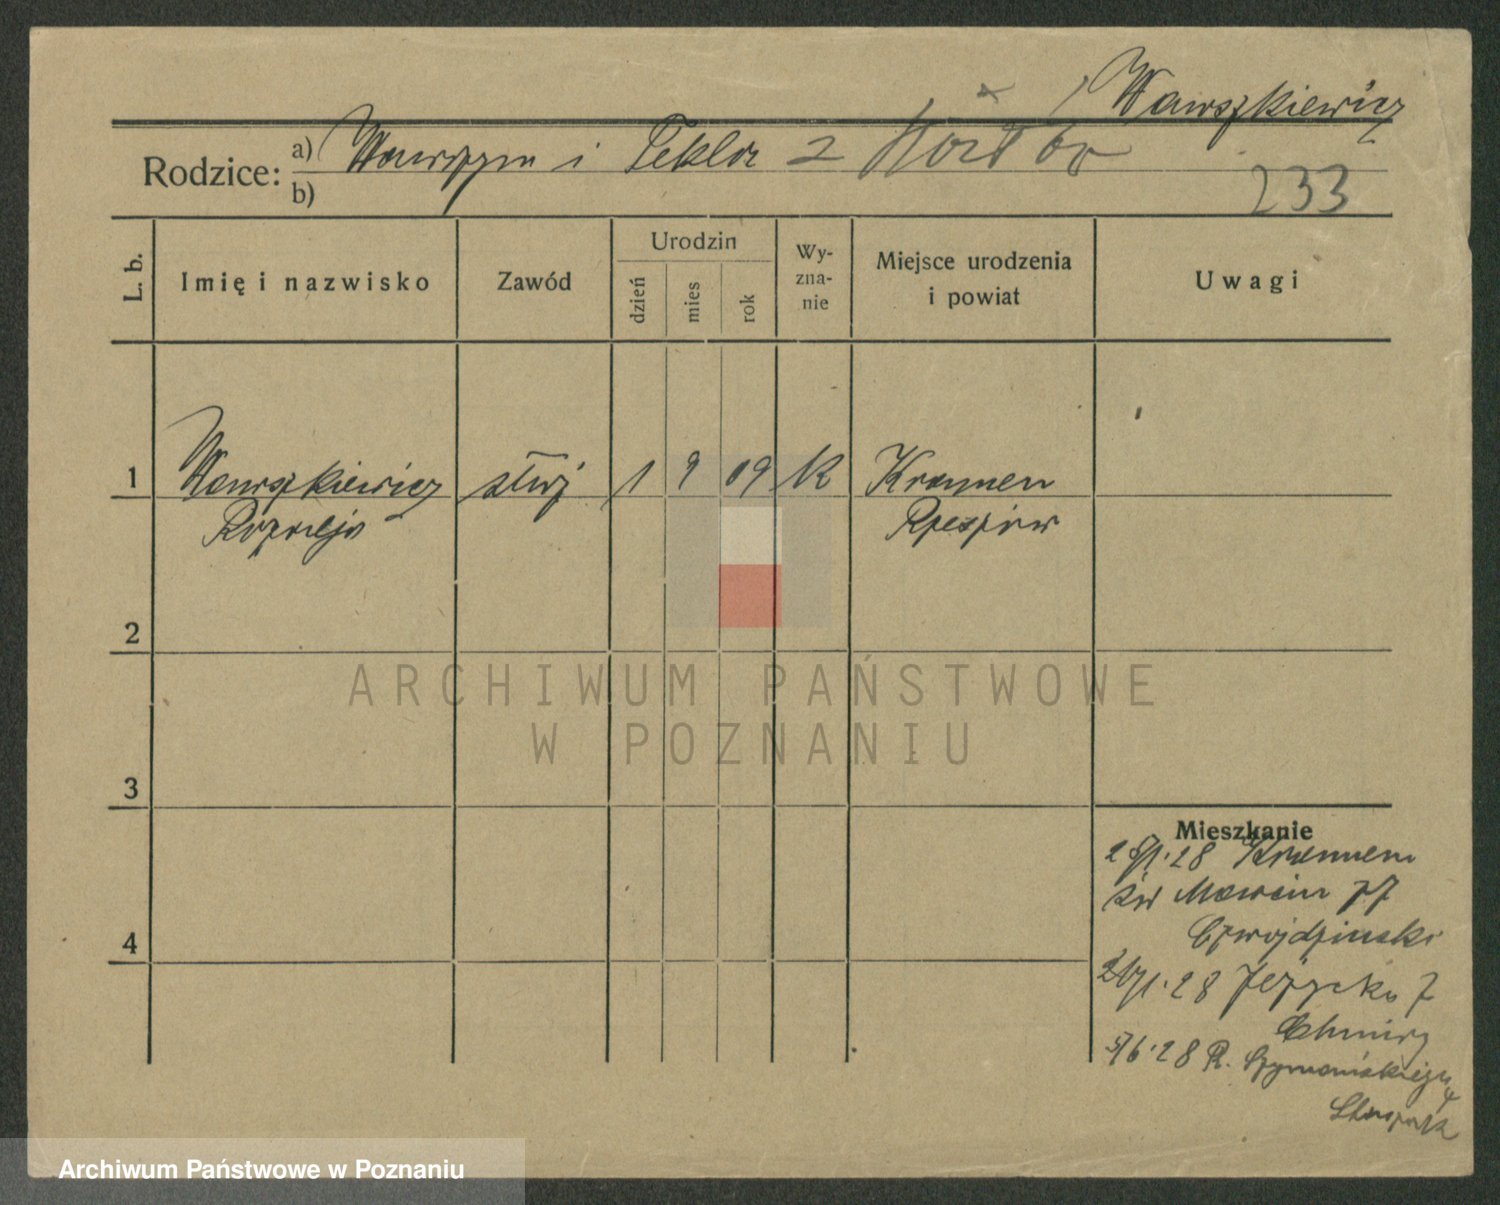 Wawrzkiewicz
Rodzice: a) Wawrzyn i Tekla z
b)
233
L. b.
Imię i nazwisko
Zawód
Urodzin
dzień
mies
rok
Wy-
zna-
nie
Miejsce urodzenia
i powiat
Uwagi
1 Wawrzkiewicz służ 1 9 09 K Krzymen
Rozalja
2
3
4
Mieszkanie
28/1.28
św Marcin 77
Czwojdziński
1.28 Jeżycka 7
5/6.28 R. Szymańskiego 4
ARCHIWUM PAŃSTWOWE
W POZNANIU
Archiwum Państwowe w Poznaniu